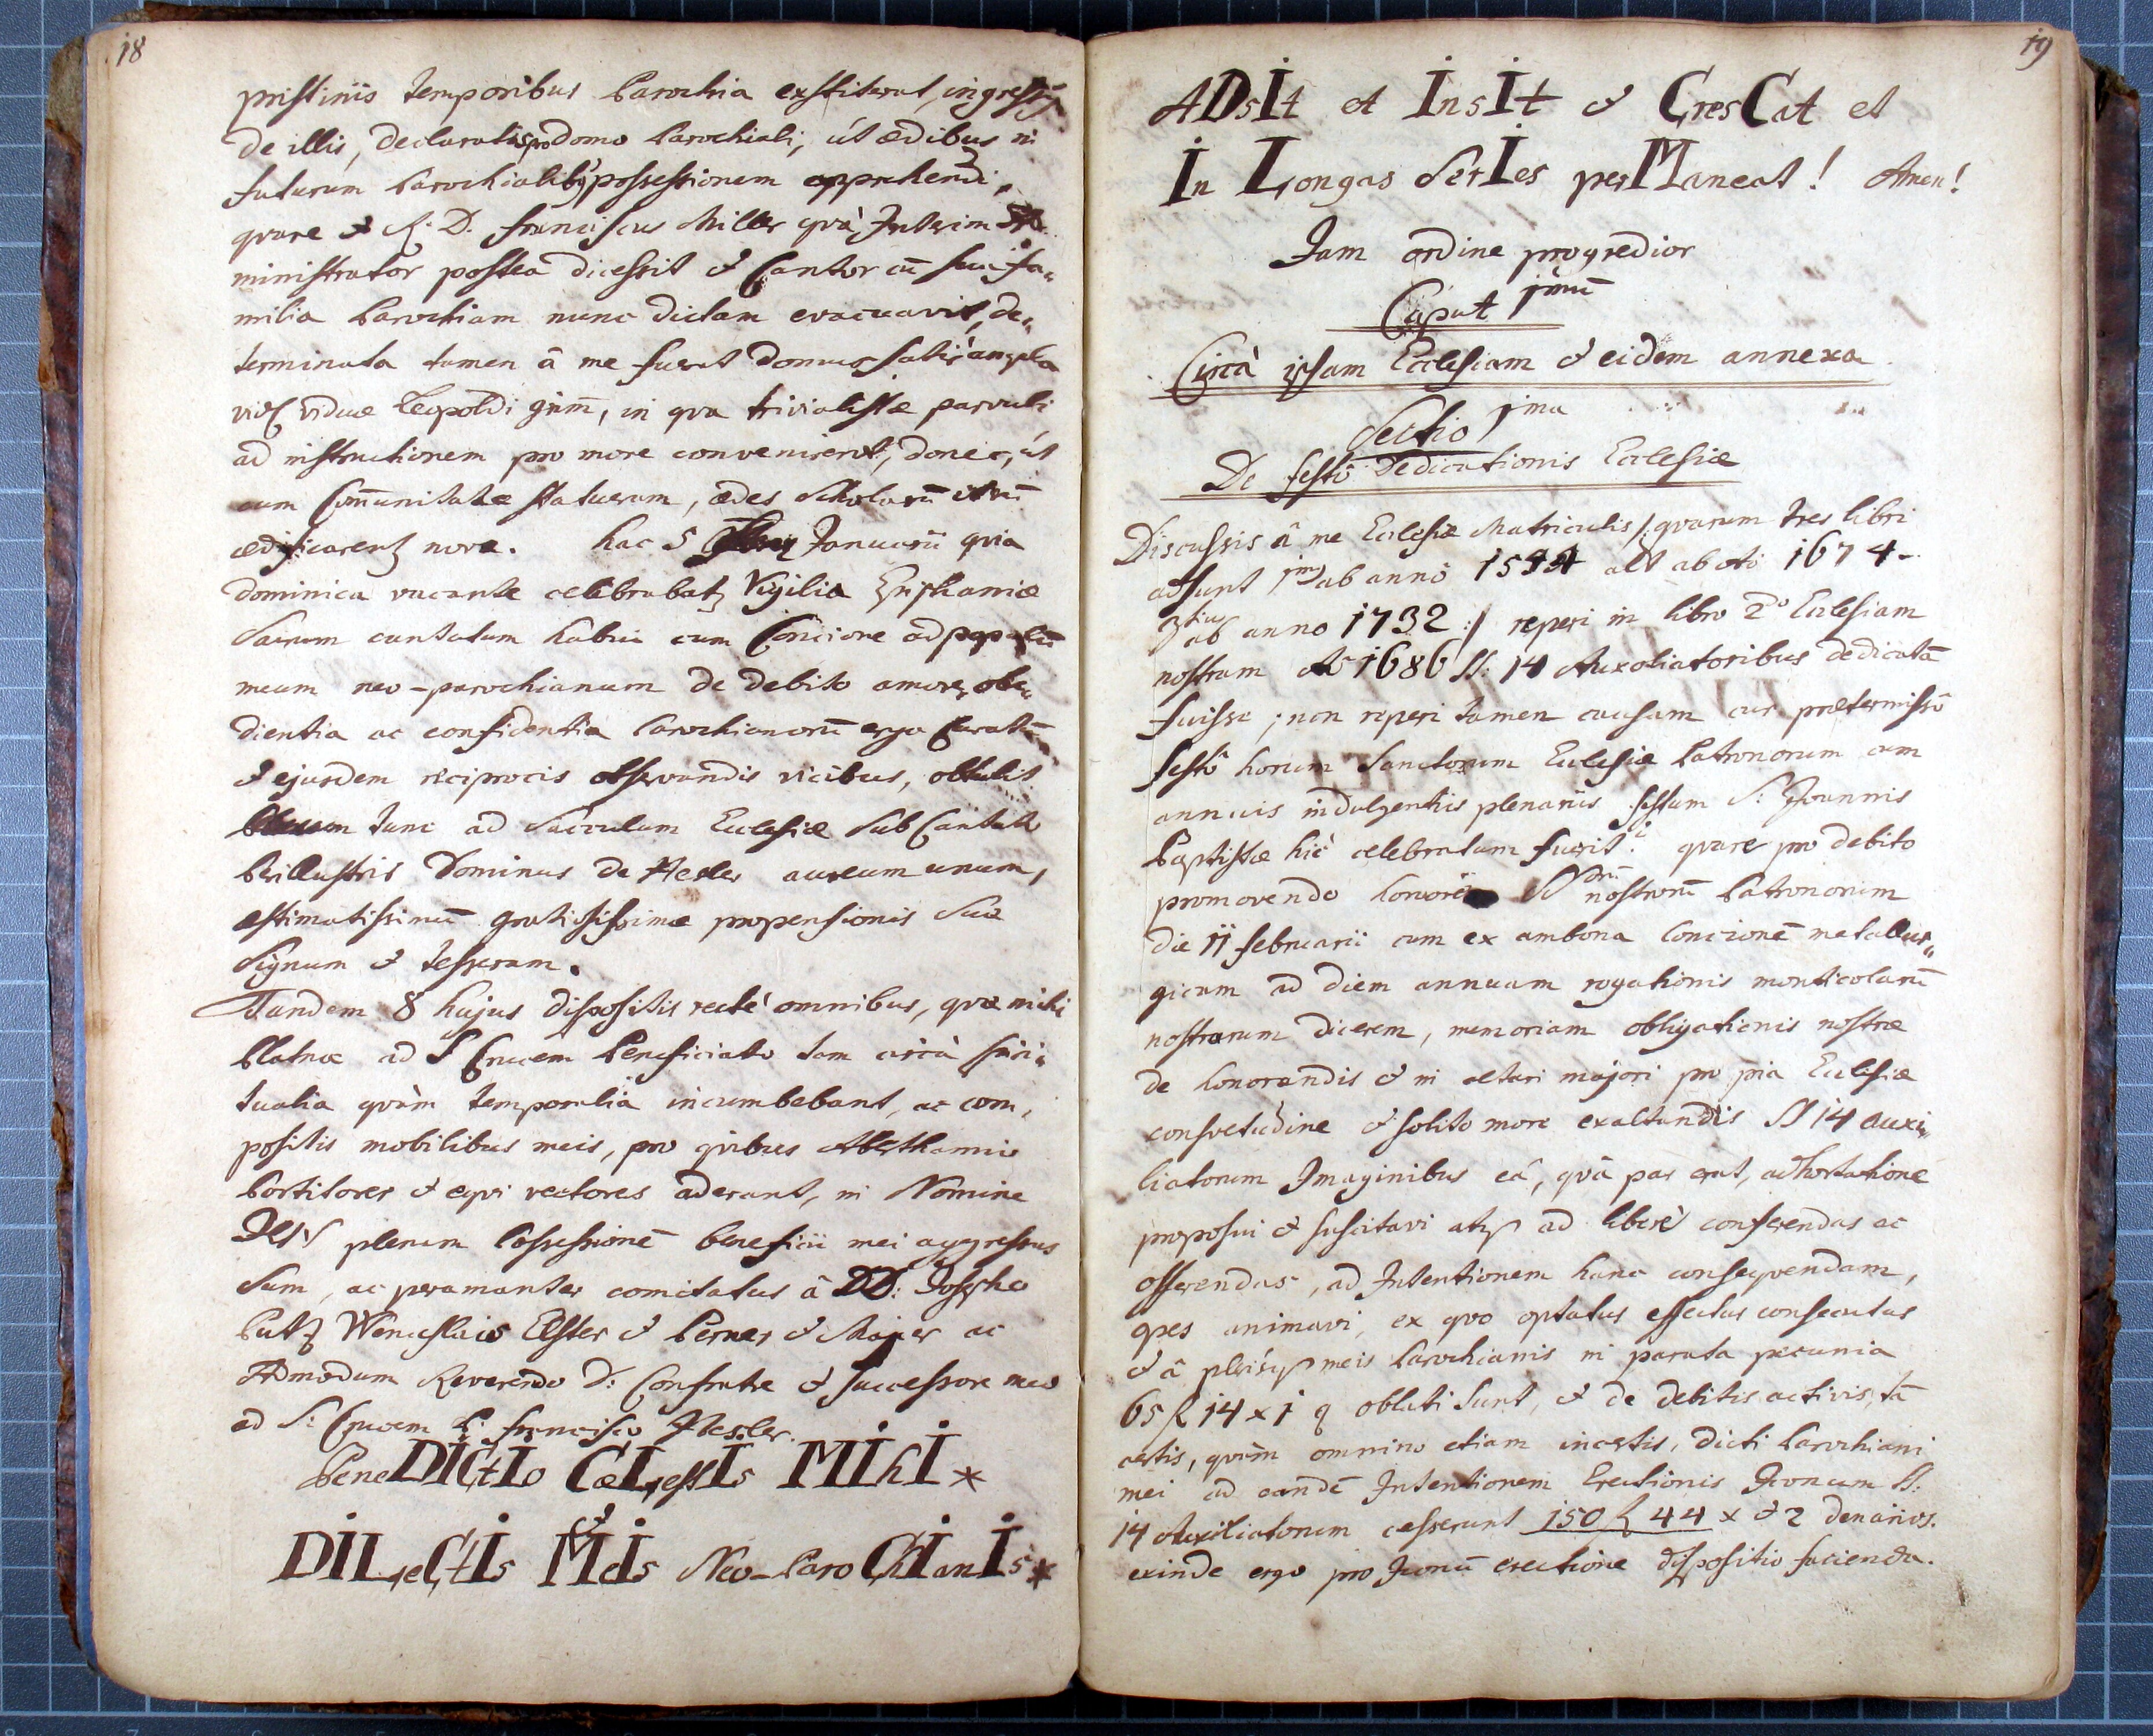 18
pristinis temporibus Parochia exstiterat, ingressus
de illis, declaratis pro domo Parochiali, út ædibus in
futurum Parochialibus possessionem apprehendi,
quare & R. D. Franciscus Miller quà Interim Ad
ministrator postea dicessit & Cantor cū sua fa„
milia Parochiam nunc dictam evacuavit, de„
terminata tamen â me fuerat domus satis ampla
viduæ Leopoldi, in qua trivialistæ parvuli
ad instructionem pro more convenirent, donec, út
cum Com̄unitate statueram, ædes Scholarū
ædificarent novæ. hac 5 Januarii quia
dominica vacante celebrabat Vigilia Epiphaniæ
Sacrum cantatum habui cum Concione ad populū
meum neo-parochianum de debito amore, obe„
dientia ac confidentia Parochianorū erga Curatū
& ejusdem reciprocis observandis vicibus, obtulit
tunc ad Sacculum Ecclesiæ sub Cantatæ
Perillustris Dominus de Hesler aureum unum,
estimatissimū gratiosissimæ propensionis suæ
Signum & tesseram.
Tandem 8 hujus dispositis rectè omnibus, quæ mihi
Platnæ ad S Crucem Beneficiato tam circà spiri„
tualia quàm temporalia incumbebant, ac com„
positis mobilibus meis, pro quibus Aberthamis
Portitores & equi vectores aderant, in Nomine
plenam Possessionē beneficii mei aggressus
sum, ac peramanter comitatus â DD: Josepho
Putz Wenceslao Elster & Perner & Majer ac
Admodum Reverendo D: Confratre & successore meo
ad S: Crucem P: Francisco Hesler.
BeneDICtIo CæLestIs MIhI *
&
DILeCtIs MeIs Neo-ParoChIanIs *
19
ADsIt et InsIt & CresCat et
In Longas SerIes perManeat! Amen!
Jam ordine progredior
Caput 1mū
Circà ipsam Ecclesiam & eidem annexa
Sectio 1ma
De festo Dedicationis Ecclesiæ
Discussis â me Ecclesiæ Matriculis /: quarum tres libri
adsunt 1mus ab anno 1544 alt ab ao 1674 -
3tius ab anno 1732 :/ reperi in libro 2do Ecclesiam
nostram Ao 1686 SS: 14 Auxoliatoribus dedicatā
fuisse; non reperi tamen causam cur prætermisso
festo horum Sanctorum Ecclesiæ Patronorum cum
annuis indulgentiis plenariis festum S: Joannis
Baptistæ hìc celebratum fuerit? quare pro debito
promovendo honore SS nostrorū Patronorum
die 11 februarii cum ex ambona Concionē metallur„
gicam ad diem annuam rogationis monticolarū
nostrarum dicerem, memoriam obligationis nostræ
de honorandis & in altari majori pro pia Ecclesiæ
consvetudine & solito more exaltandis SS 14 auxi„
liatorum Imaginibus eâ, quâ par erat, adhortatione
proposui & suscitavi atque ad liberè conferendas ac
offerendas, ad Intentionem hanc consequendam,
opes animavi, ex quo optatus effectus consecutus
& â plerisque meis Parochianis in parata pecunia
65 f 14 x 1 q oblati sunt, & de debitis activis, tā
certis, quàm omnino etiam incertis, dicti Parochiani
mei ad eandē Intentionem Erectionis Iconum SS.
14 Auxiliatorum cesserunt 150 f 44 x & 2 denarios.
exinde ergo pro Iconū erectione dispositio facienda.